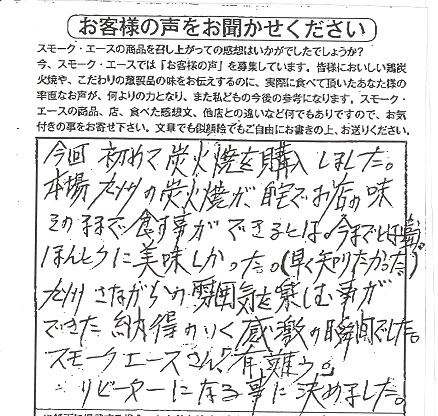 お客様の声をお聞かせください
スモーク・エースの商品を召し上がっての感想はいかがでしたでしょうか?
今、スモーク・エースでは「お客様の声」を募集しています。皆様においしい鶏炭
火焼や、こだわりの燻製品の味をお伝えするのに、実際に食べて頂いたあなた様の
率直なお声が、何よりの力となり、また私どもの今後の参考になります。スモーク・
エースの商品、店、食べた感想文、他店との違いなど何でもありますので、お気
付きの事をお寄せ下さい。文章でも似顔絵でもご自由にお書きの上、お送りください。
今回 初めて炭火焼を購入しました。
本場九州の炭火焼が、自宅でお店の味
そのままで食す事ができるとは。今までとは
ほんとうに美味しかった。(早く知りたかった)
九州さながらの雰囲気を楽しむ事が
できた納得のいく感激の瞬間でした。
スモークエースさん、「有難う」。
リピーターになる事に決めました。